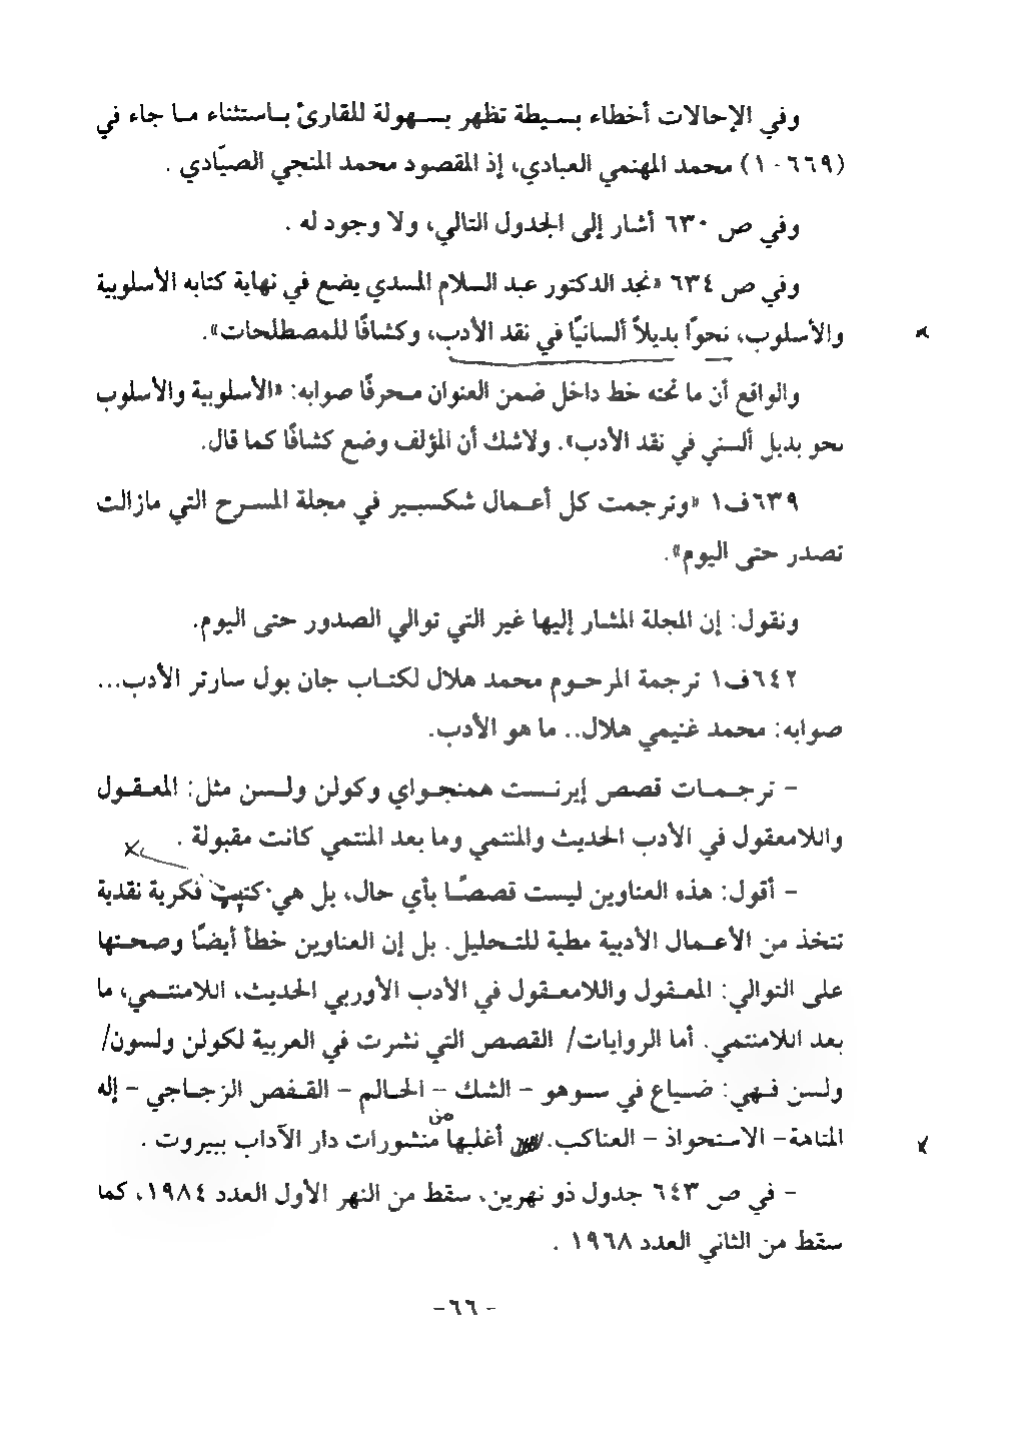 وفي الإحالات أخطاء بسيطة تظهر بسهولة للقارئ باستثناء ما جاء في
(١٠٦٦٩) محمد المهنمي العبادي، إذ المقصود محمد المنجي الصيّادي .
وفي ص ٦٣٠ أشار إلى الجدول التالي، ولا وجود له .
وفي ص ٦٣٤ «نجد الدكتور عبد السلام المسدي يضع في نهاية كتابه الأسلوبية
والأسلوب، نحوًا بديلاً ألسانيًا في نقد الأدب، وكشافًا للمصطلحات».
والواقع أن ما تحته خط داخل ضمن العنوان محرفًا صوابه: «الأسلوبية والأسلوب
نحو بديل ألسني في نقد الأدب». ولاشك أن المؤلف وضع كشافًا كما قال.
٦٣٩ف١ «وترجمت كل أعمال شكسبير في مجلة المسرح التي مازالت
تصدر حتى اليوم».
ونقول: إن المجلة المشار إليها غير التي توالي الصدور حتى اليوم.
٦٤٢ف١ ترجمة المرحوم محمد هلال لكتاب جان بول سارتر الأدب...
صوابه: محمد غنيمي هلال.. ما هو الأدب.
- ترجمات قصص إيرنست همنجواي وكولن ولسن مثل: المعقول
واللامعقول في الأدب الحديث والمنتمي وما بعد المنتمي كانت مقبولة .
- أقول: هذه العناوين ليست قصصًا بأي حال، بل هي كتب فكرية نقدية
تتخذ من الأعمال الأدبية مطية للتحليل. بل إن العناوين خطأ أيضًا وصحتها
على التوالي: المعقول واللامعقول في الأدب الأوربي الحديث، اللامنتمي، ما
بعد اللامنتمي. أما الروايات/ القصص التي نشرت في العربية لكولن ولسون/
ولسن فهي: ضياع في سوهو - الشك - الحالم - القفص الزجاجي - إله
المتاهة- الاستحواذ - العناكب. أغلبها من منشورات دار الآداب ببيروت .
- في ص ٦٤٣ جدول ذو نهرين، سقط من النهر الأول العدد ١٩٨٤، كما
سقط من الثاني العدد ١٩٦٨ .
-٦٦ -